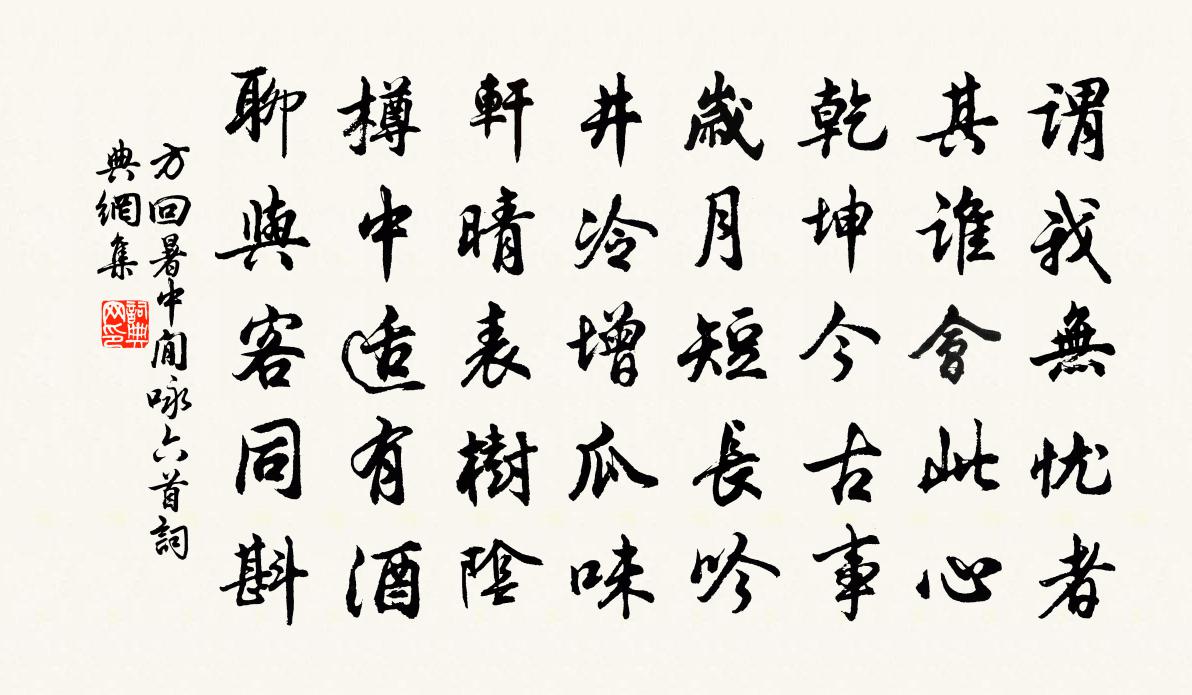 謂我無忧者
其誰會此心
乾坤今古事
歲月短長吟
井冷增瓜味
軒晴表樹陰
樽中适有酒
聊與客同斟
方回暑中閒咏六首詞
典網集
詞典
网印